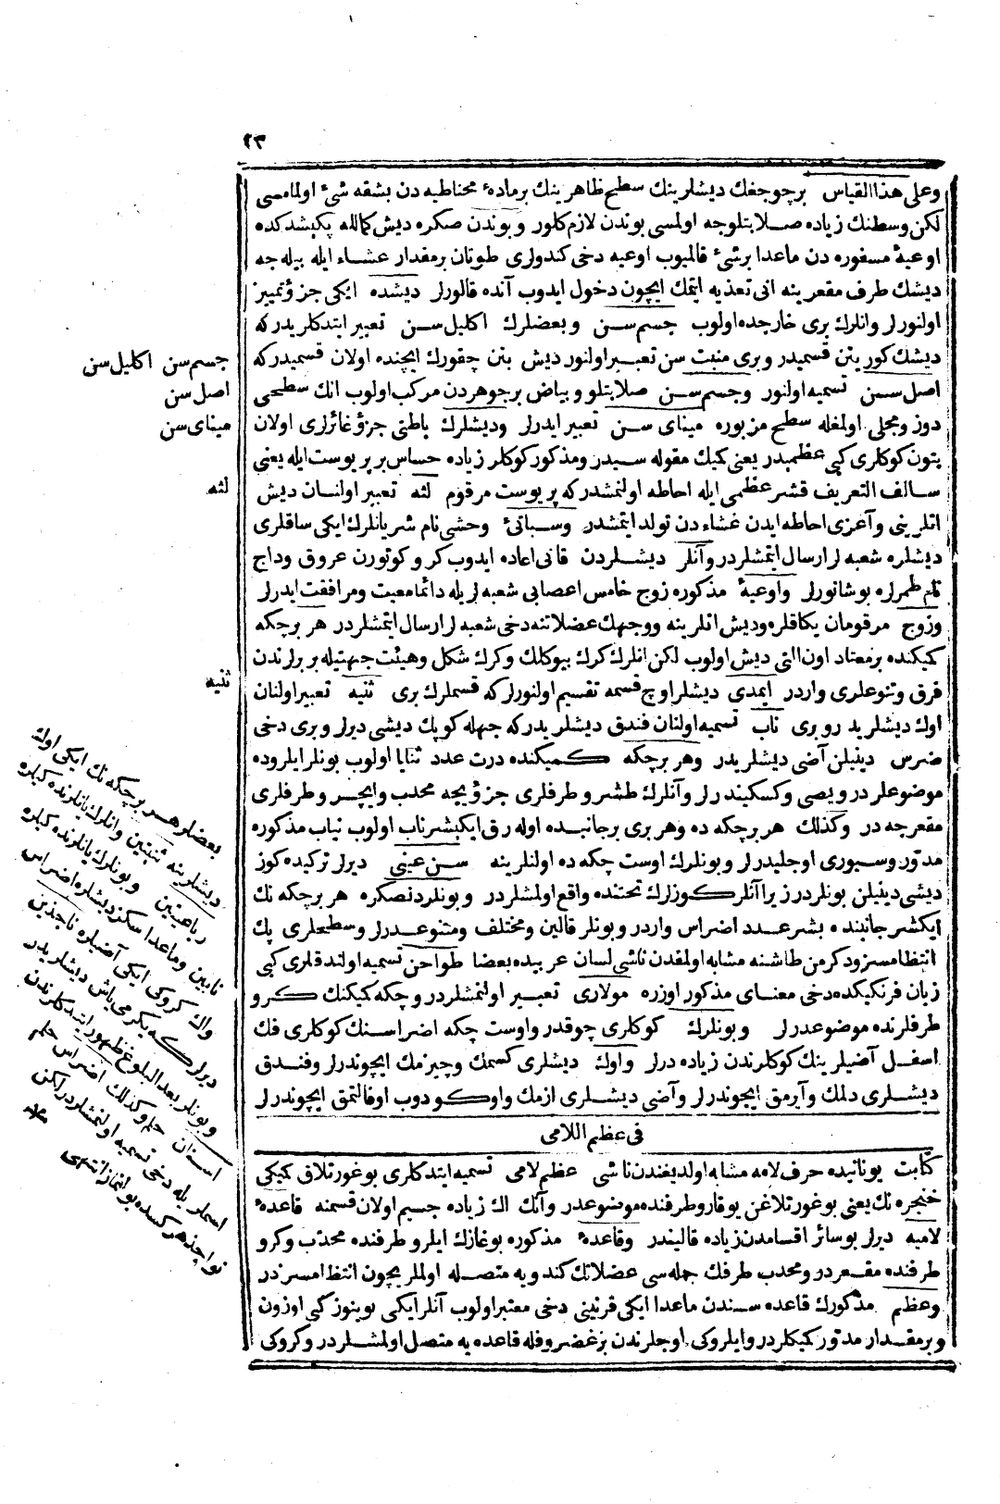 ٢٣
وعلى هذا القياس برچوجغك ديشلرينك سطح ظاهرينك برمادهٔ مخاطيه دن بشقه شئ اولمامسى
لكن وسطنك زياده صلابتلوجه اولمسى بوندن لازم كلور وبوندن صكره ديش كالله يكيشدكده
اوعيهٔ مسفوره دن ماعدا برشئ قالميوب اوعيه دخى كندولرى طوتان برمقدار عشاء ايله بيله جه
ديشك طرف مقعرينه انى تعذيه ايتمك ايچون دخول ايدوب آنده قالورلر ديشده ايكى جزؤ تمييز
اولنورلر وانلرك برى خارجده اولوب جسم سن وبعضلرك اكليل سن تعبير ايتدكلريدركه
ديشك كورينن قسميدر وبرى منبت سن تعبير اولنور ديش بتن چقورك ايچنده اولان قسميدركه
اصل سن تسميه اولنور وجسم سن صلابتلو وبياض برجوهردن مركب اولوب انك سطحى
دوز ومجلى اولمغله سطح مزبوره ميناى سن تعبير ايدرلر وديشلرك باطنى جزؤ غائرلرى اولان
بتون كوكلرى كبى عظميدر يعنى كميك مقوله سيدر ومذكور كوكلر زياده حساس بر پوست ايله يعنى
سالف التعريف قشر عظمى ايله احاطه اولنمشدركه پوست مرقوم لثه تعبير اولنان ديش
اتلرينى وآغزى احاطه ايدن غشاء دن تولد ايتمشدر وسباتئ وحشى نام شريانلرك ايكى ساقلرى
ديشلره شعبه لر ارسال ايتمشلردر وآنلر ديشلردن قانى اعاده ايدوب كرو كوتورن عروق وداج
نام طمرلره بوشانورلر واوعيهٔ مذكوره زوج خامس اعصابى شعبه لريله دائما معيت ومرافقت ايدرلر
وزوج مرقومان يكاقلره وديش اتلرينه ووجهك عضلاتنه دخى شعبه لر ارسال ايتمشلردر هر برچكه
كميكنده بر معتاد اون التى ديش اولوب لكن انلرك كرك بيوكلك وكرك شكل وهيئت جهتيله بربرلرندن
فرق وتنوعلرى واردر ايمدى ديشلر اوچ قسمه تقسيم اولنورلركه قسملرك برى ثنيه تعبير اولنان
اوك ديشلريدر وبرى ناب تسميه اولنان فندق ديشلريدركه جهله كوپك ديشى ديرلر وبرى دخى
ضرس دينيلن آضى ديشلريدر وهر برچكه كميكنده درت عدد ثنايا اولوب بونلر ايلروده
موضوعلردر ويصى وكسكيندرلر وآنلرك طشر وطرفلرى جزؤيجه محدب وايچر وطرفلرى
مقعرجه در وكذلك هر برچكه ده وهر برى برجانبده اوله رق ايكيشر ناب اولوب نياب مذكوره
مدور وسيورى اوجليدرلر وبونلرك اوست چكه ده اولنلرينه سن عينى ديرلر تركيده كوز
ديشى دينيلن بونلردر زيرا آنلر كوزلرك تحتنده واقع اولمشلردر وبونلردنصكره هر برچكه نك
ايكشر جانبنده بشر عدد اضراس واردر وبونلر قالين ومختلف ومتنوعدرلر وسطحلرى پك
انتظامسزدر كرمن طاشنه مشابه اولمغدن ناشى لسان عربيده بعضا طواحن تسميه اولندقلرى كبى
زبان فرنكيكده دخى معناى مذكور اوزره مولارى تعبير اولنمشلردر وچكه كميكنك كرو
طرفلرنده موضوعدرلر وبونلرك كوكلرى چوقدر واوست چكه اضراسنك كوكلرى فك
اسفل آضيلرينك كوكلرندن زياده درلر واوك ديشلرى كسمك وچيزمك ايچوندرلر وفندق
ديشلرى دلمك وآيرمق ايچوندرلر وآضى ديشلرى ازمك واوكودوب اوفالتمق ايچوندرلر
فى عظم اللامى
كتابت يونانيده حرف لامه مشابه اولديغندن ناشى عظم لامى تسميه ايتدكلرى بوغورتلاق كميكى
خنجره نك يعنى بوغورتلاغن يوقارو طرفنده موضوعدر وآنك اك زياده جسيم اولان قسمنه قاعدهٔ
لاميه ديرلر بوسائر اقسامدن زياده قاليندر وقاعدهٔ مذكوره بوغازك ايلرو طرفنده محدب وكرو
طرفنده مقعردر ومحدب طرفك جمله سى عضلاتك كندويه متصله اولملريچون انتظامسزدر
وعظم مذكورك قاعده سندن ماعدا ايكى قرنينى دخى معتبر اولوب آنلر ايكى بوينوز كبى اوزون
وبرمقدار مدور كميكلردر وايلروكى اوجلرندن بر غضروفله قاعده يه متصل اولمشلردر وكروكى
جسم سن اكليل سن
اصل سن
ميناى سن
لثه
ثنيه
بعضلر هر برچكه نك ايكى اوك
ديشلرينه ثنيتين وانلرك يانلرنده كيلره
رباعيتين وبونلرك يانلرنده كيلره
نابين وماعدا سكز ديشلره اضراس
واك كروكى ايكى آضيلره ناجذين
ديرلركه يكرمى ياش ديشلريدر
وبونلر بعد البلوغ ظهور ايتدكلرندن
اسنان حلم وكذلك اضراس حلم
اسملريله دخى تسميه اولنمشلردر لكن
نواجذ هر كسده بولنماز انتهى